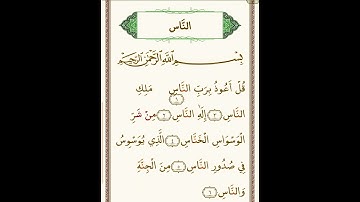 النَّاس
بِسْمِ اللَّهِ الرَّحْمَٰنِ الرَّحِيمِ
قُلْ أَعُوذُ بِرَبِّ النَّاسِ ١ مَلِكِ
النَّاسِ ٢ إِلَٰهِ النَّاسِ ٣ مِنْ شَرِّ
الْوَسْوَاسِ الْخَنَّاسِ ٤ الَّذِي يُوَسْوِسُ
فِي صُدُورِ النَّاسِ ٥ مِنَ الْجِنَّةِ
وَالنَّاسِ ٦